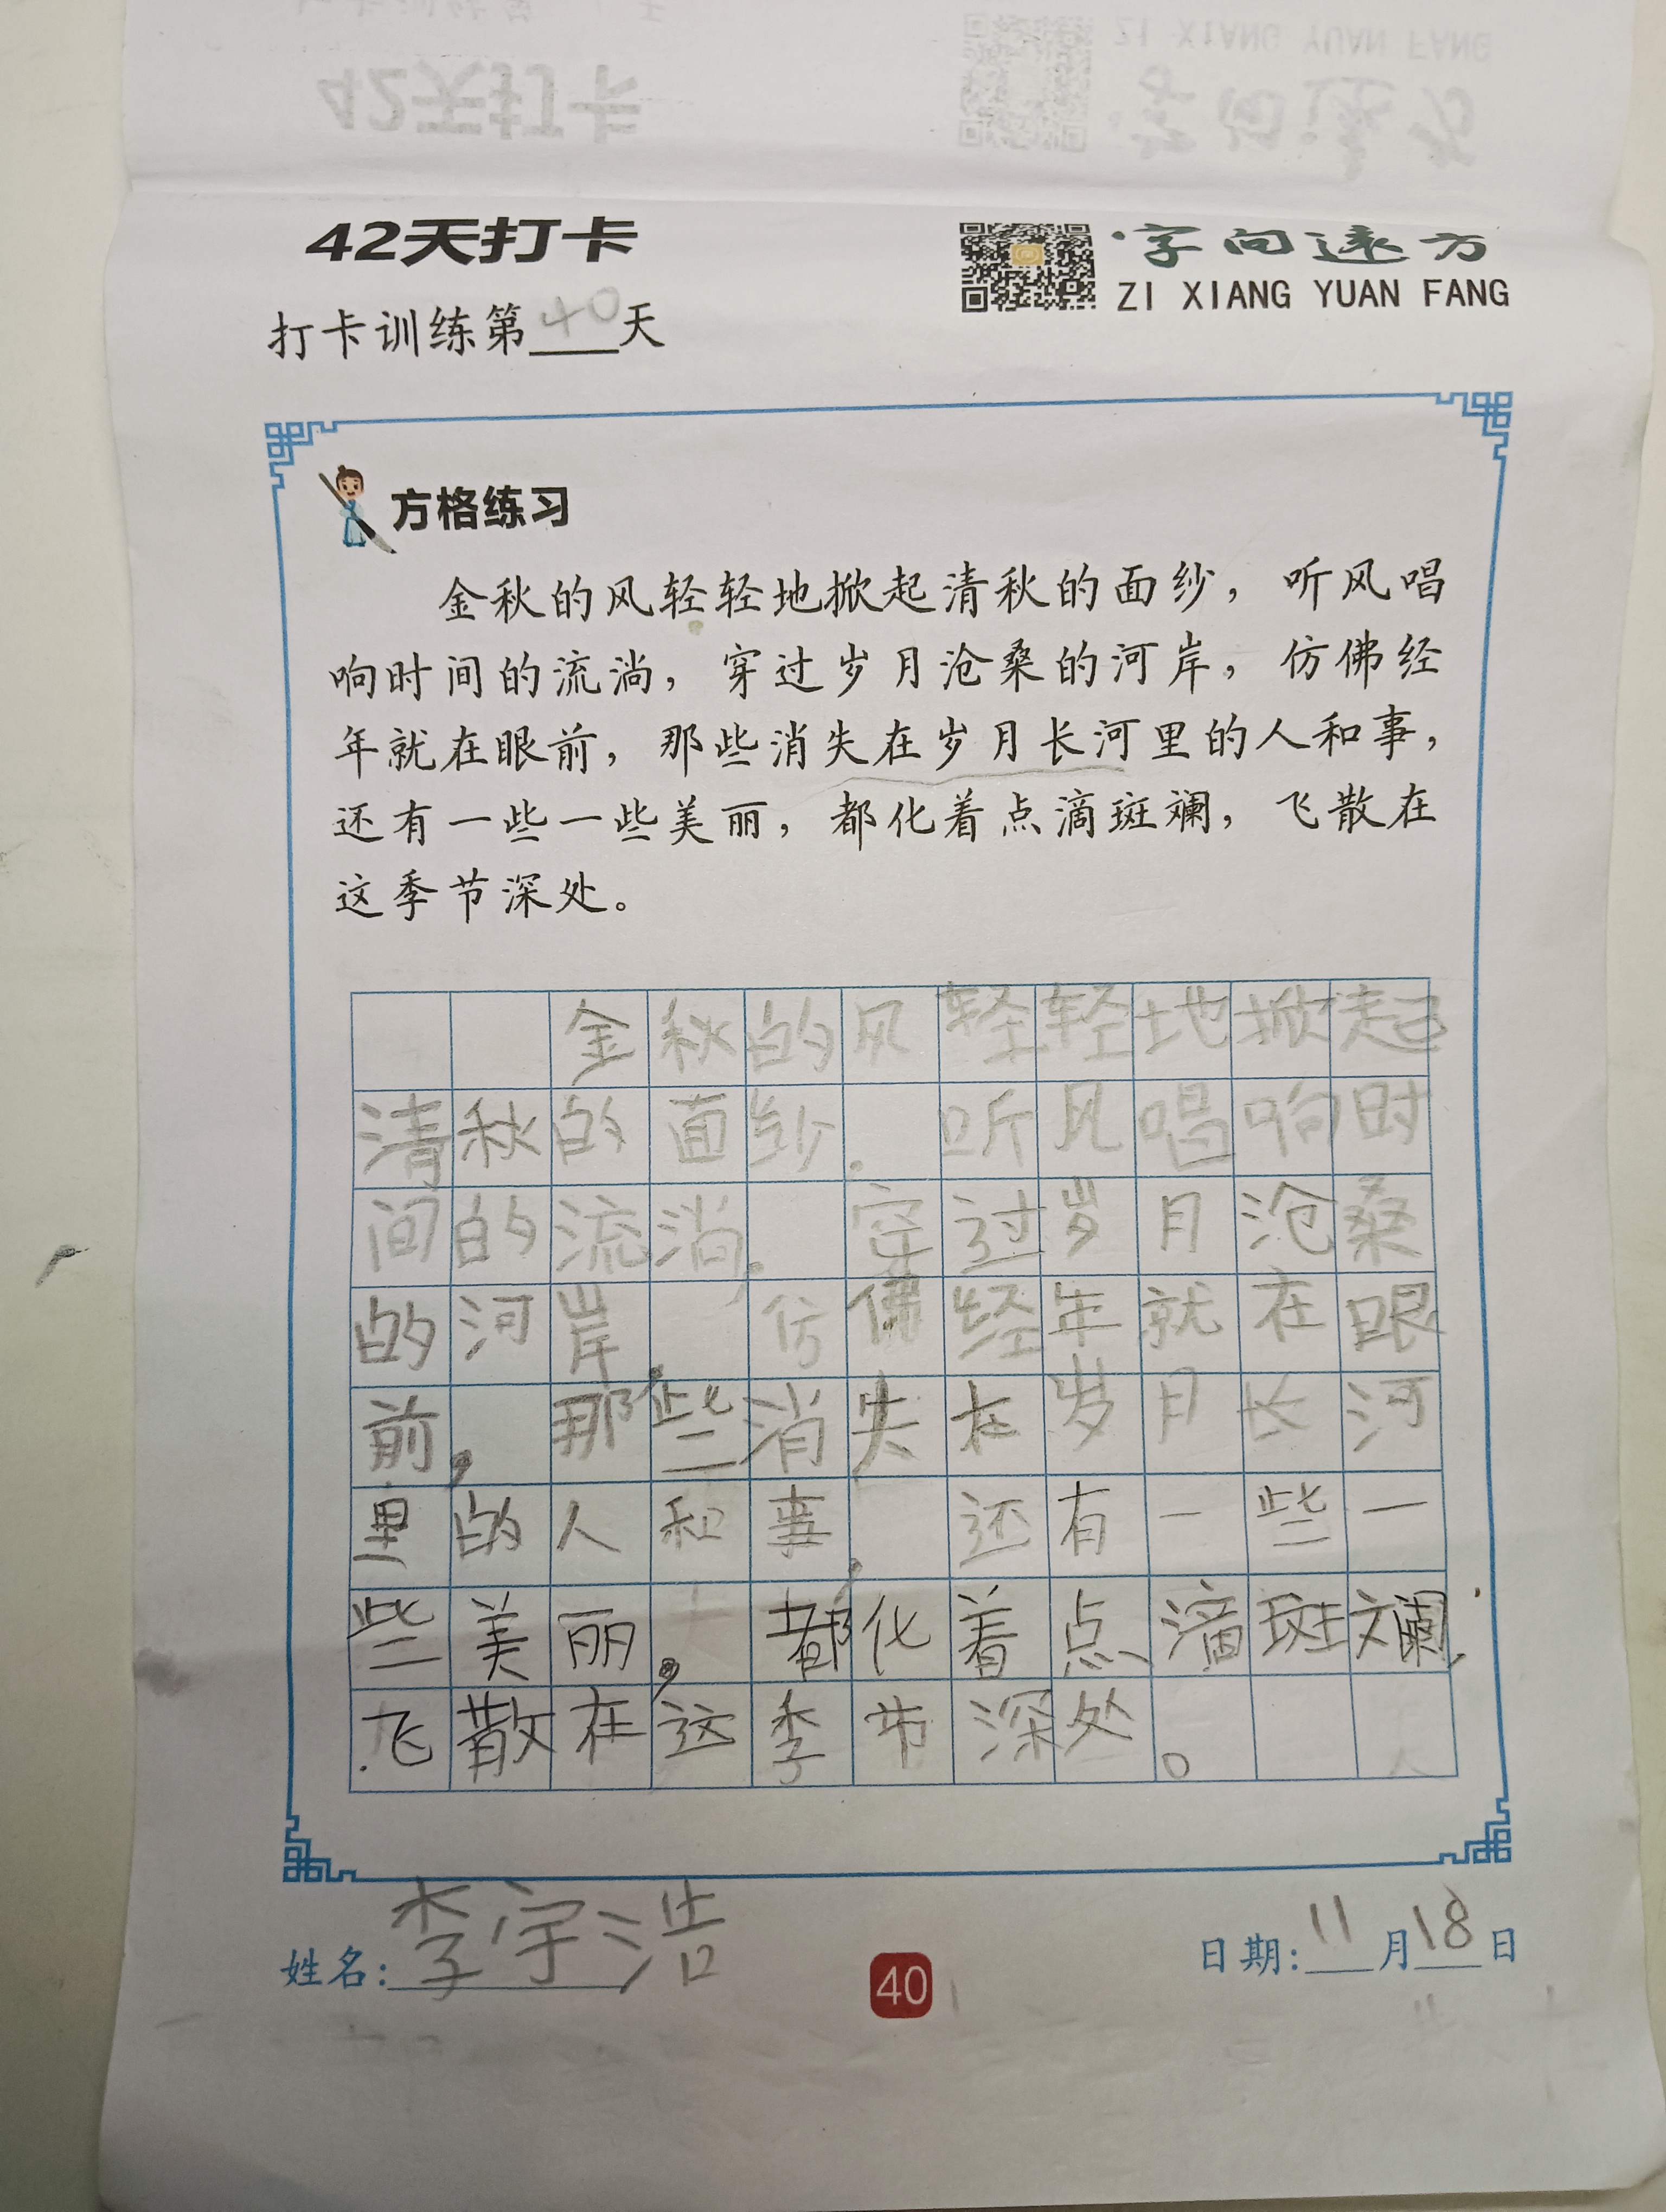 42天打卡
字向远方
ZI XIANG YUAN FANG
打卡训练第40天
方格练习
金秋的风轻轻地掀起清秋的面纱，听风唱
响时间的流淌，穿过岁月沧桑的河岸，仿佛经
年就在眼前，那些消失在岁月长河里的人和事，
还有一些一些美丽，都化着点滴斑斓，飞散在
这季节深处。
金秋的风轻轻地掀起
清秋的面纱，听风唱响时
间的流淌，穿过岁月沧桑
的河岸，仿佛经年就在眼
前，那些消失在岁月长河
里的人和事，还有一些一
些美丽，都化着点滴斑斓，
飞散在这季节深处。
姓名：李宇浩
40
日期：11月18日